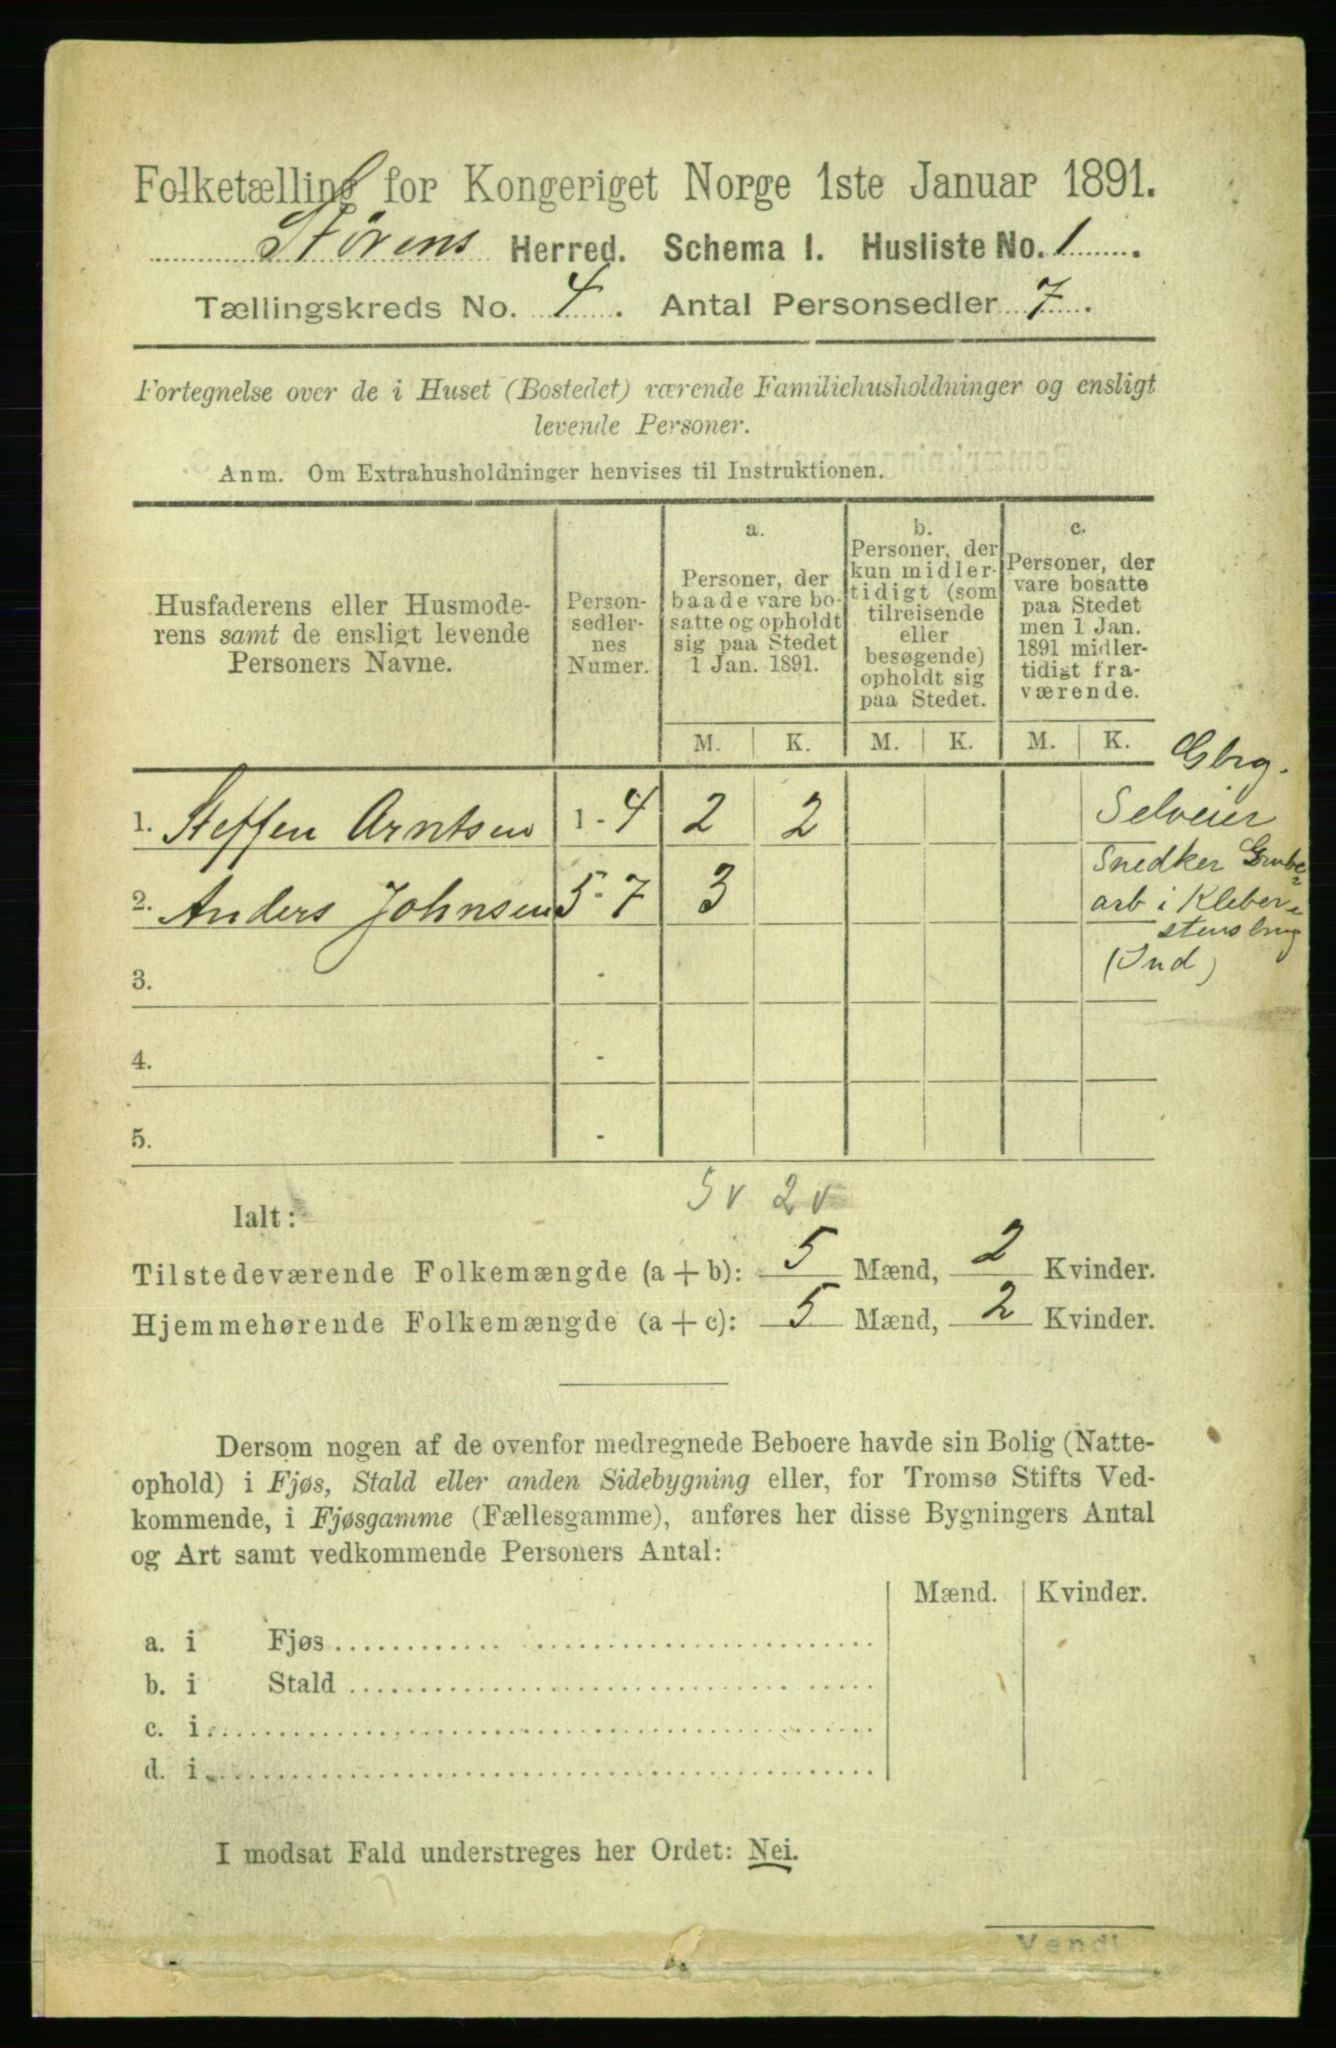 Folketælling for Kongeriget Norge 1ste Januar 1891.
Størens Herred. Schema I. Husliste No. 1.
Tællingskreds No. 4. Antal Personsedler 7.
Fortegnelse over de i Huset (Bostedet) værende Familiehusholdninger og ensligt
levende Personer.
Anm. Om Extrahusholdninger henvises til Instruktionen.
Husfaderens eller Husmode-
rens samt de ensligt levende
Personers Navne.
Person-
sedler-
nes
Numer.
a.
Personer, der
baade vare bo-
satte og opholdt
sig paa Stedet
1 Jan. 1891.
b.
Personer, der
kun midler-
tidigt (som
tilreisende
eller
besøgende)
opholdt sig
paa Stedet.
c.
Personer, der
vare bosatte
paa Stedet
men 1 Jan.
1891 midler-
tidigt fra-
værende.
M. K. M. K. M. K.
Gbrg.
1. Steffen Arntsen 1 - 4 2 2 Selveier
Snedker Grube=
2. Anders Johnsen 5 - 7 3 arb i Kleber=
stensbrug
(Ind)
3. -
4. -
5. -
5 v 2 v
Ialt:
Tilstedeværende Folkemængde (a + b): 5 Mænd, 2 Kvinder.
Hjemmehørende Folkemængde (a + c): 5 Mænd, 2 Kvinder.
Dersom nogen af de ovenfor medregnede Beboere havde sin Bolig (Natte-
ophold) i Fjøs, Stald eller anden Sidebygning eller, for Tromsø Stifts Ved-
kommende, i Fjøsgamme (Fællesgamme), anføres her disse Bygningers Antal
og Art samt vedkommende Personers Antal:
Mænd. Kvinder.
a. i Fjøs
b. i Stald
c. i
d. i
I modsat Fald understreges her Ordet: Nei.
Vend!